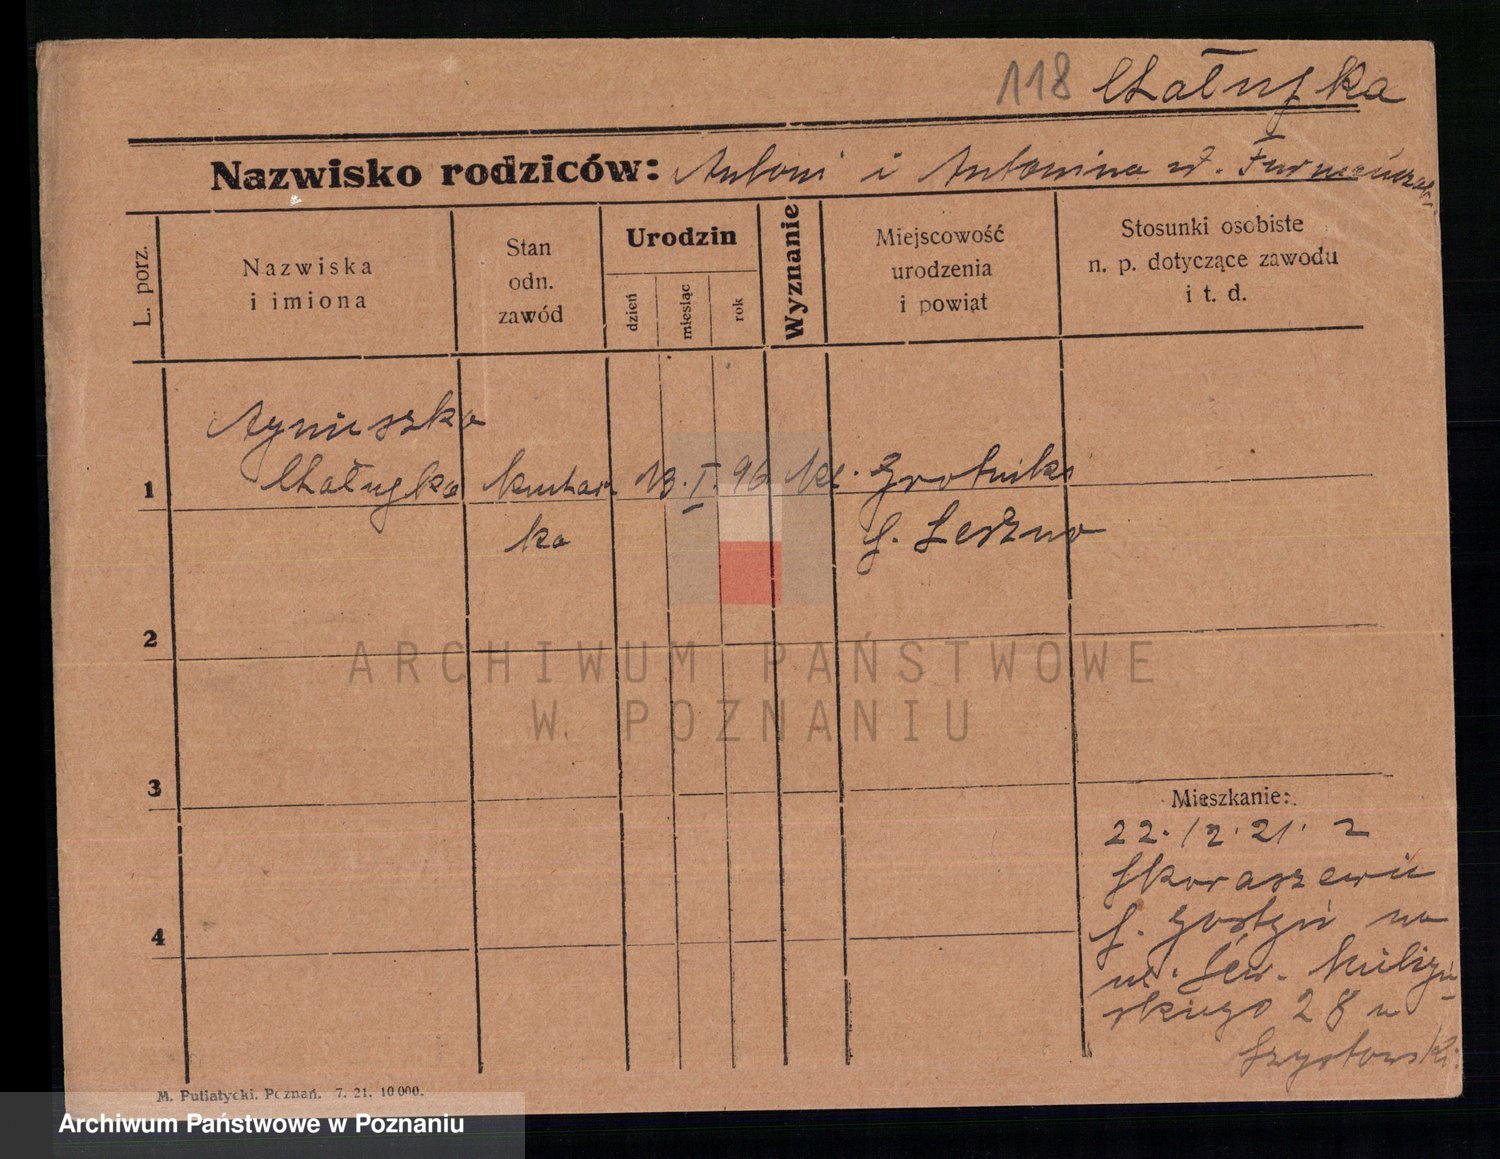 118 Chałupka
Nazwisko rodziców: Antoni i Antonina z d. Furmańczak
L. porz.
Nazwiska
i imiona
Stan
odn.
zawód
Urodzin
dzień
miesiąc
rok
Wyznanie
Miejscowość
urodzenia
i powiat
Stosunki osobiste
n. p. dotyczące zawodu
i t. d.
Agnieszka
1 Chałupka kuchar- 13. I. 96 kt. Grotniki
ka p. Leszno
2
3
4
Mieszkanie:
22.12.21. z
Skoraszewic
p. Gostyń na
ul. Sew. Mielżyń-
skiego 28 u
M. Putiatycki. Poznań. 7. 21. 10000.
ARCHIWUM PAŃSTWOWE
W POZNANIU
Archiwum Państwowe w Poznaniu